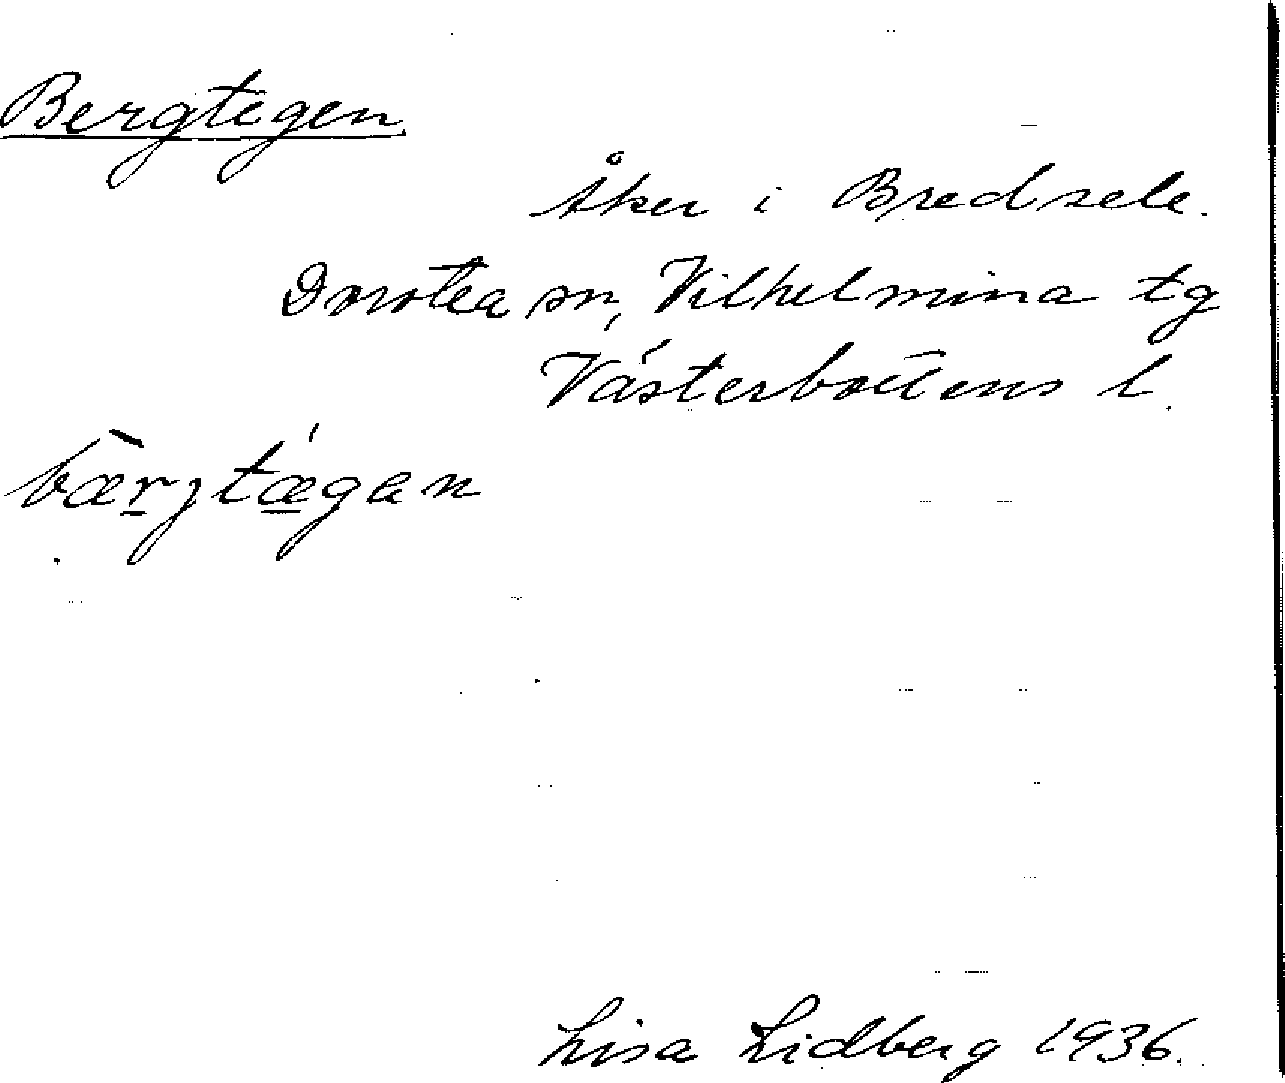 Bergtegen
Åker i Bredsele.
Dorotea sn, Vilhelmina tg
Västerbottens l.
bæ̀rjtǽgan
Lisa Lidberg 1936.